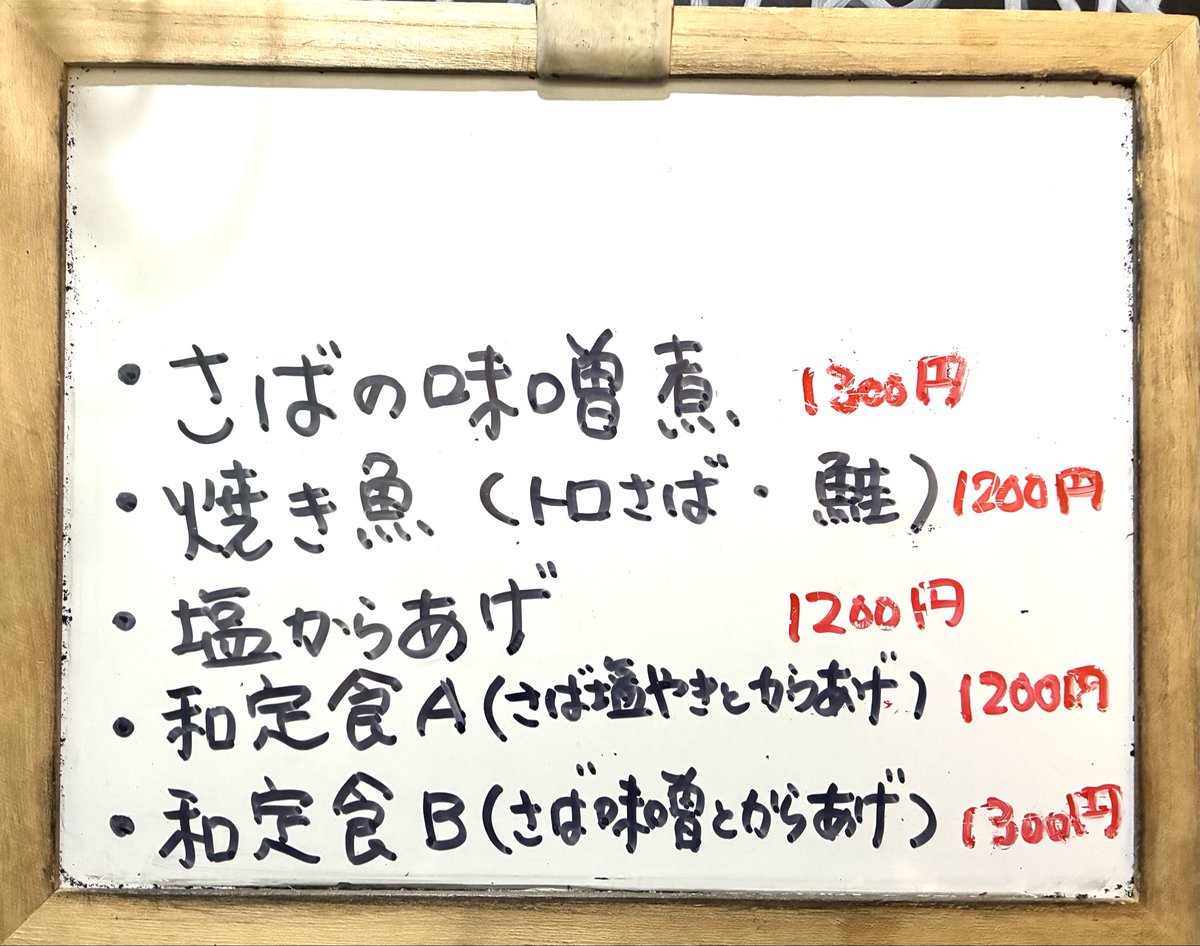 ・さばの味噌煮 1300円
・焼き魚（トロさば・鮭）1200円
・塩からあげ 1200円
・和定食A（さば塩やきとからあげ）1200円
・和定食B（さば味噌とからあげ）1300円